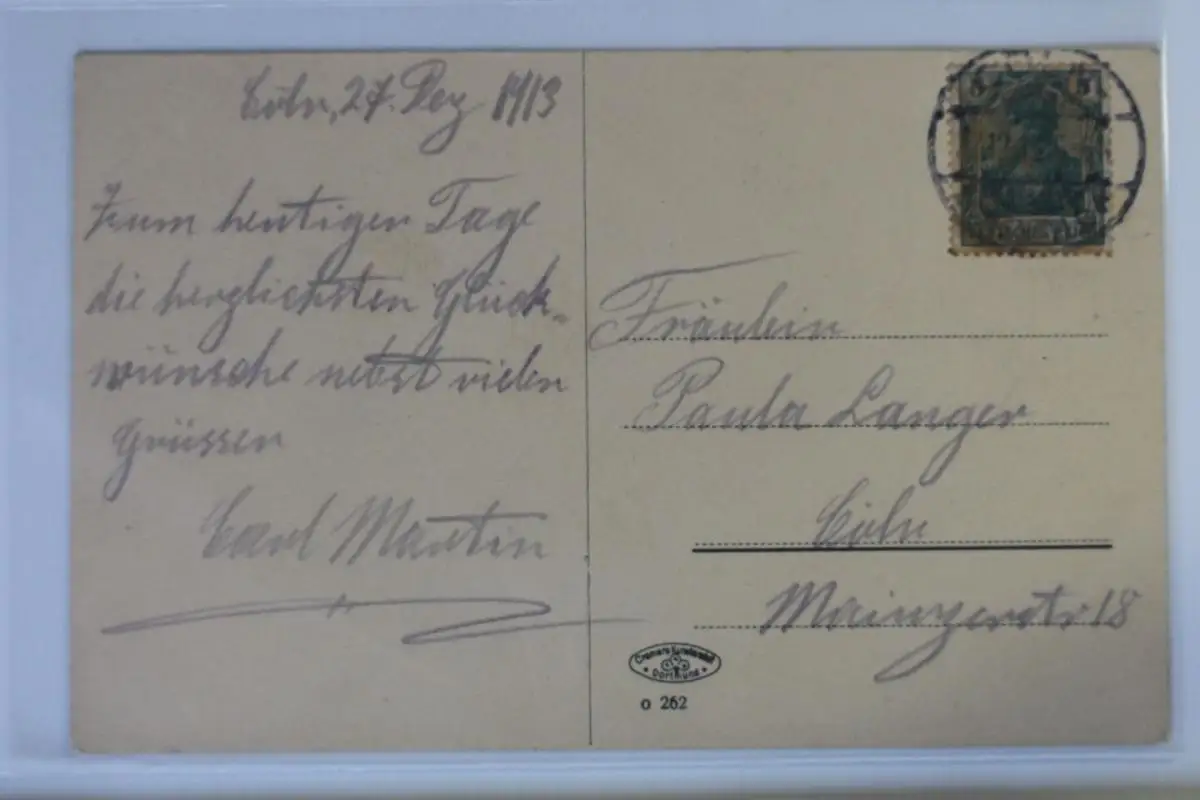 Cöln, 27. Dez 1913
Zum heutigen Tage
die herzlichsten Glück-
wünsche nebst vielen
Grüssen
Carl Martin
5 5
Fräulein
Paula Langer
Cöln
Mainzerstr 18
Cramers Kunstanstalt
Dortmund
o 262